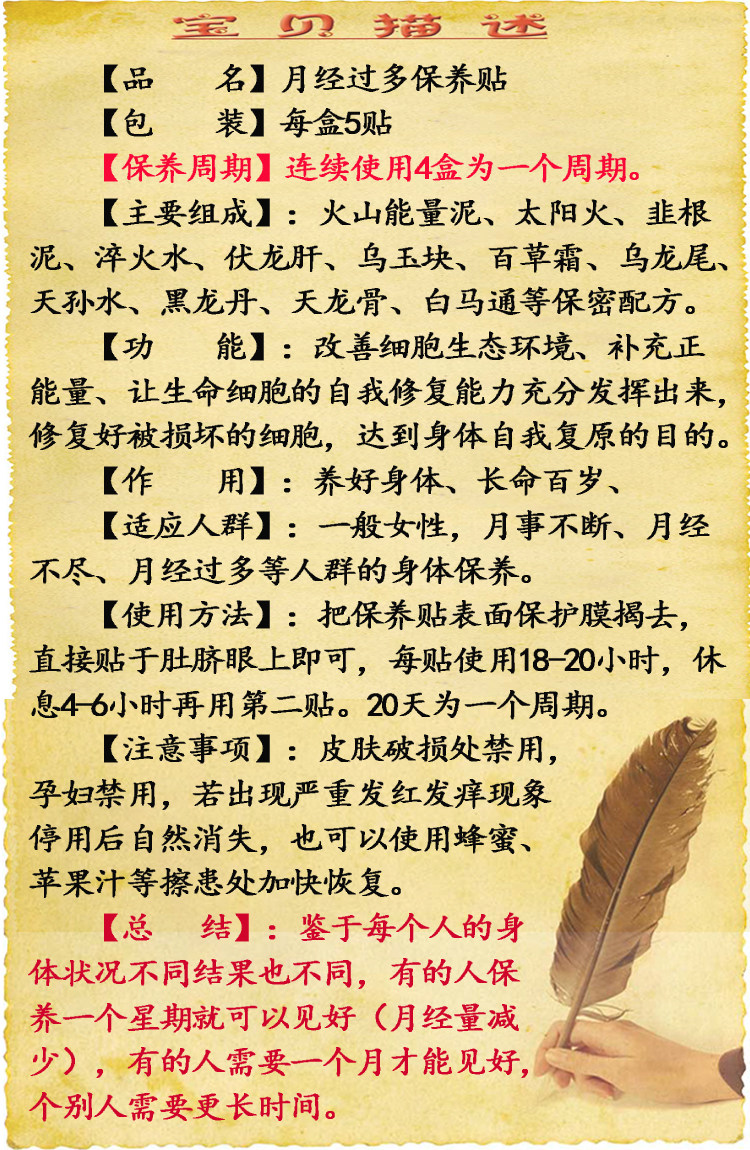 宝贝描述
【品 名】月经过多保养贴
【包 装】每盒5贴
【保养周期】连续使用4盒为一个周期。
【主要组成】：火山能量泥、太阳火、韭根
泥、淬火水、伏龙肝、乌玉块、百草霜、乌龙尾、
天孙水、黑龙丹、天龙骨、白马通等保密配方。
【功 能】：改善细胞生态环境、补充正
能量、让生命细胞的自我修复能力充分发挥出来，
修复好被损坏的细胞，达到身体自我复原的目的。
【作 用】：养好身体、长命百岁、
【适应人群】：一般女性，月事不断、月经
不尽、月经过多等人群的身体保养。
【使用方法】：把保养贴表面保护膜揭去，
直接贴于肚脐眼上即可，每贴使用18-20小时，休
息4-6小时再用第二贴。20天为一个周期。
【注意事项】：皮肤破损处禁用，
孕妇禁用，若出现严重发红发痒现象
停用后自然消失，也可以使用蜂蜜、
苹果汁等擦患处加快恢复。
【总 结】：鉴于每个人的身
体状况不同结果也不同，有的人保
养一个星期就可以见好（月经量减
少），有的人需要一个月才能见好，
个别人需要更长时间。